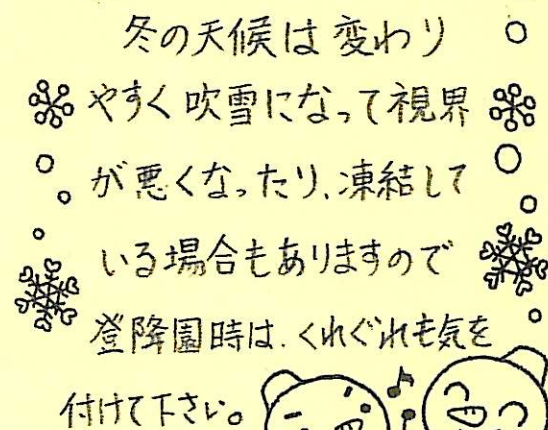 冬の天候は変わり
やすく吹雪になって視界
が悪くなったり、凍結して
いる場合もありますので
登降園時は、くれぐれも気を
付けて下さい。